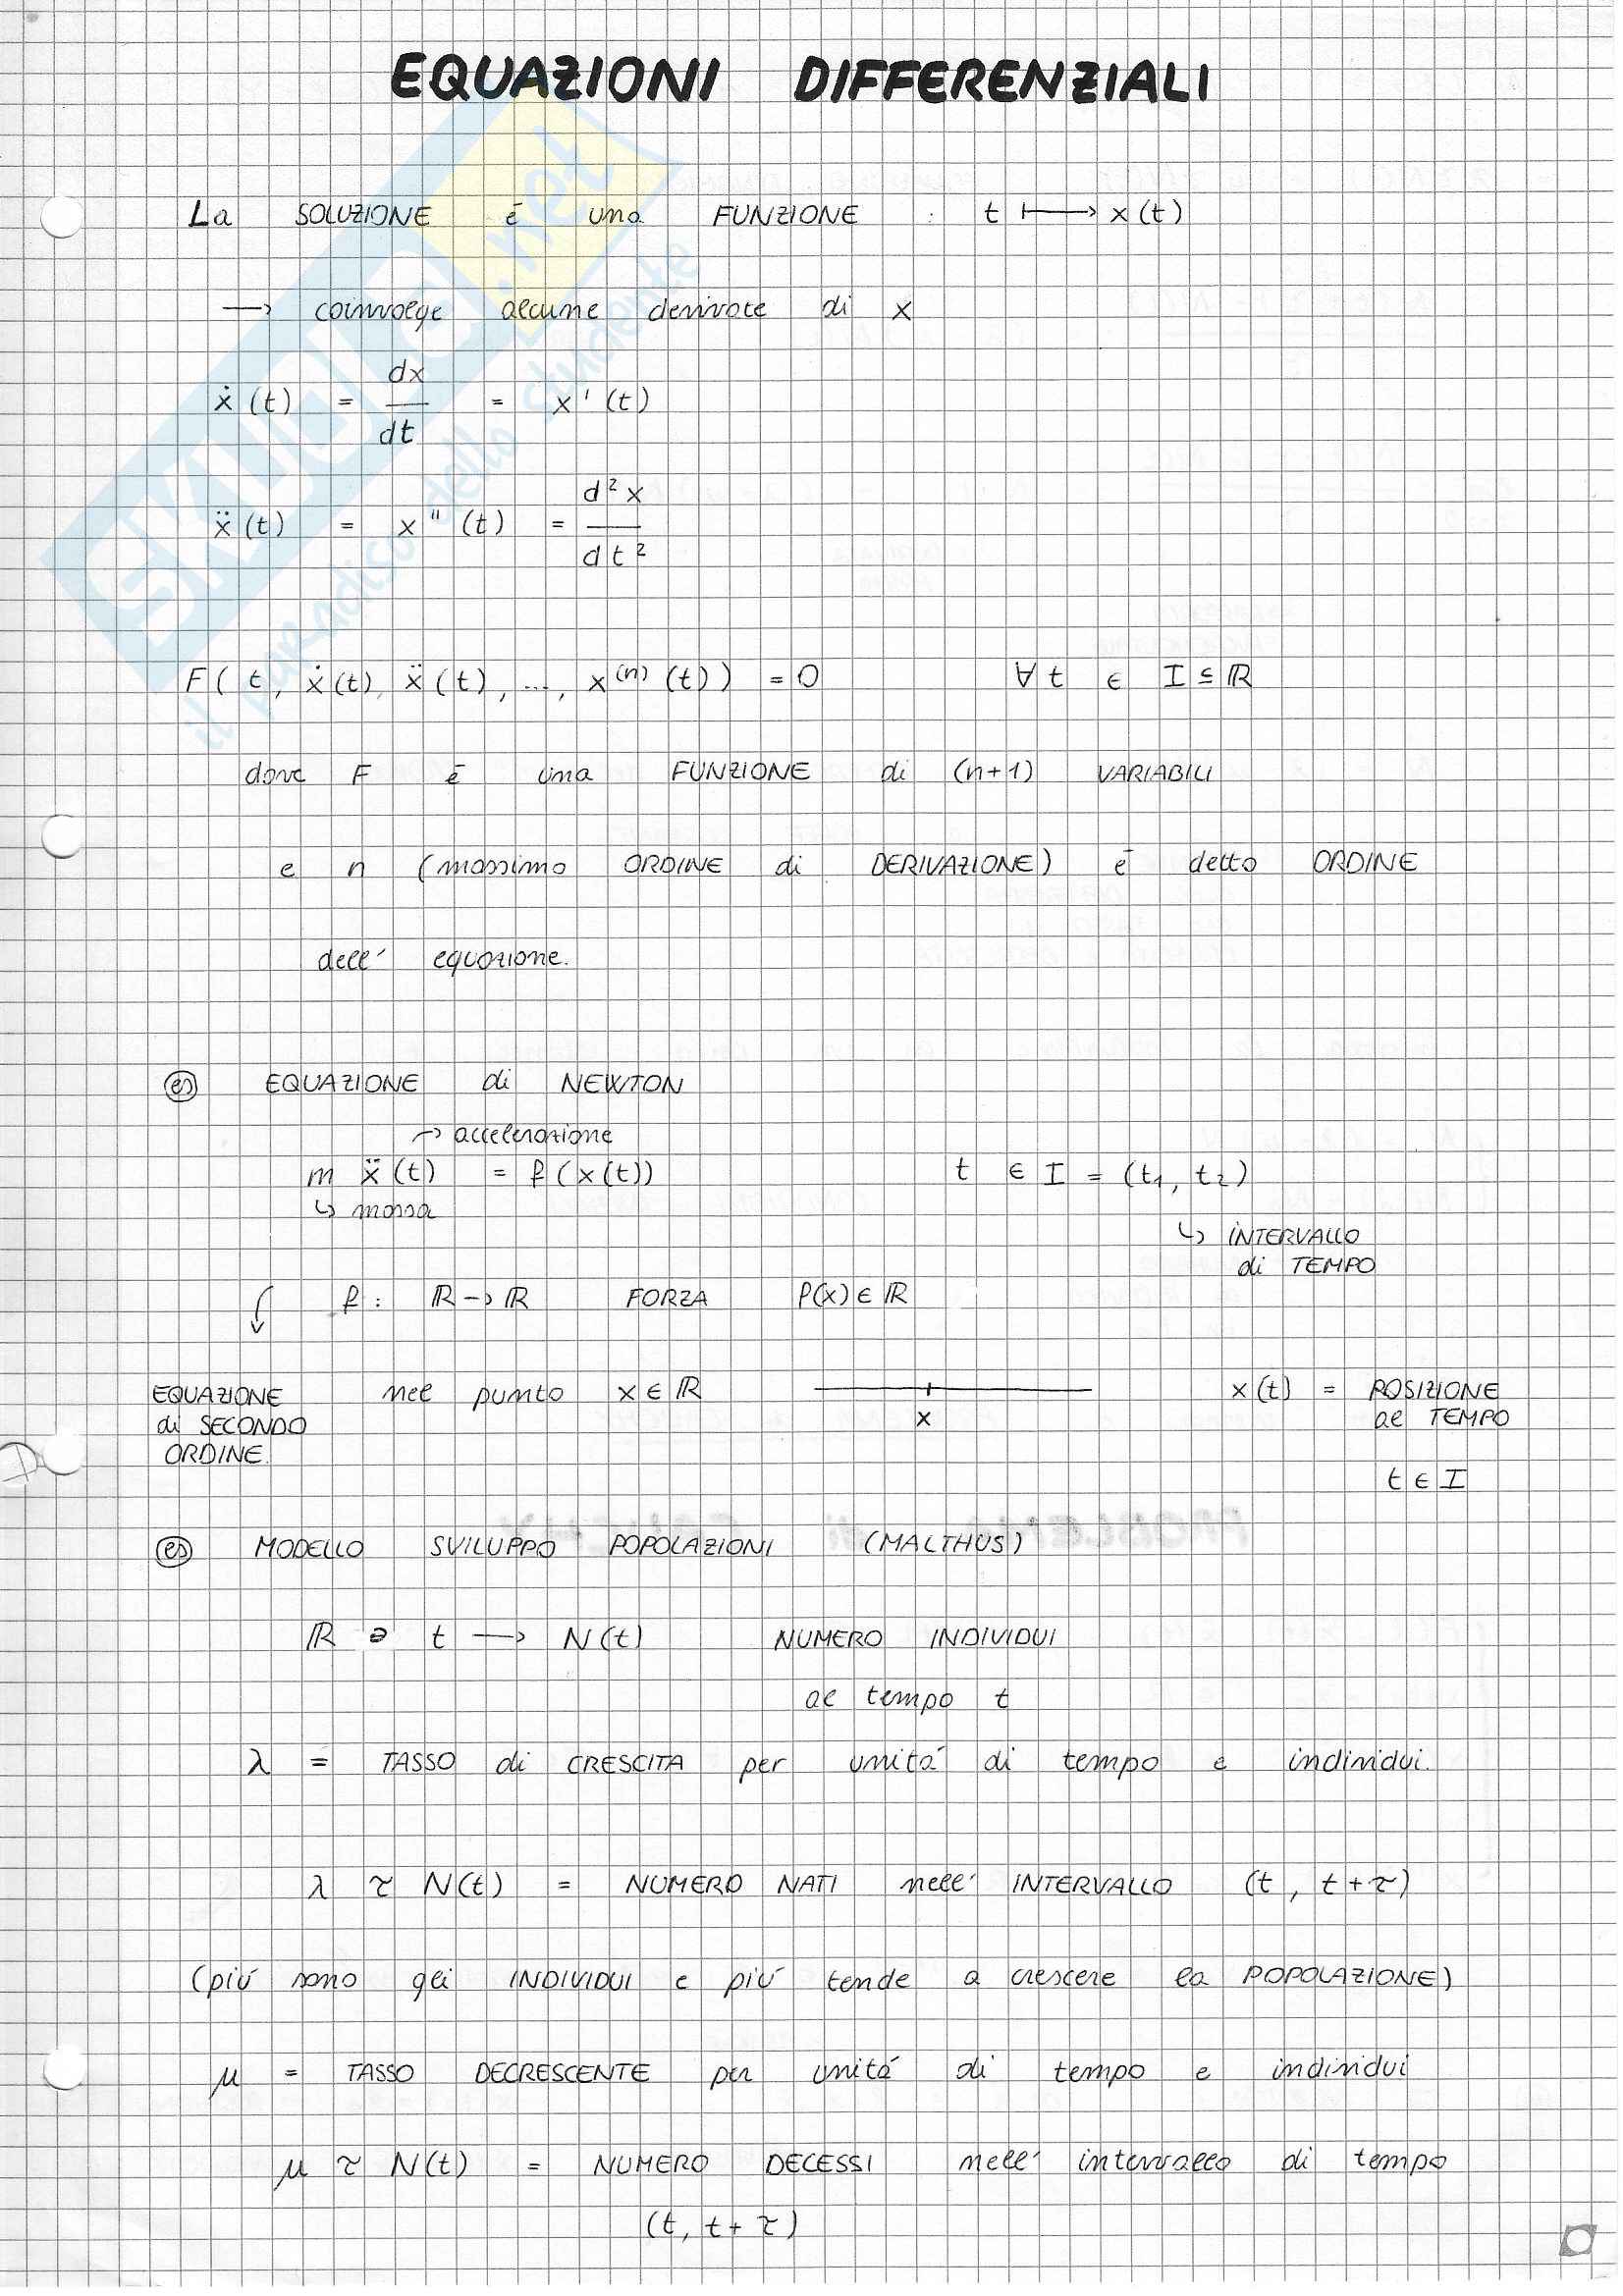 EQUAZIONI DIFFERENZIALI
La SOLUZIONE é una FUNZIONE : t ⟼ x(t)
→ coinvolge alcune derivate di x
ẋ(t) = dx/dt = x'(t)
ẍ(t) = x"(t) = d²x/dt²
F( t, ẋ(t), ẍ(t), ..., x⁽ⁿ⁾(t)) = 0 ∀ t ∈ I ⊆ ℝ
dove F é una FUNZIONE di (n+1) VARIABILI
e n (massimo ORDINE di DERIVAZIONE) é detto ORDINE
dell' equazione.
es EQUAZIONE di NEWTON
→ accelerazione
m ẍ(t) = f(x(t)) t ∈ I = (t₁, t₂)
↳ massa
↳ INTERVALLO
di TEMPO
f : ℝ → ℝ FORZA f(x) ∈ ℝ
EQUAZIONE
di SECONDO
ORDINE.
nel punto x ∈ ℝ
x
x(t) = POSIZIONE
al TEMPO
t ∈ I
es MODELLO SVILUPPO POPOLAZIONI (MALTHUS)
ℝ ∋ t → N(t) NUMERO INDIVIDUI
al tempo t
λ = TASSO di CRESCITA per unitá di tempo e individui.
λ τ N(t) = NUMERO NATI nell' INTERVALLO (t, t+τ)
(piú sono gli INDIVIDUI e piú tende a crescere la POPOLAZIONE)
μ = TASSO DECRESCENTE per unitá di tempo e individui
μ τ N(t) = NUMERO DECESSI nell' intervallo di tempo
(t, t+τ)
SKUOLA.net
il paradiso dello studente